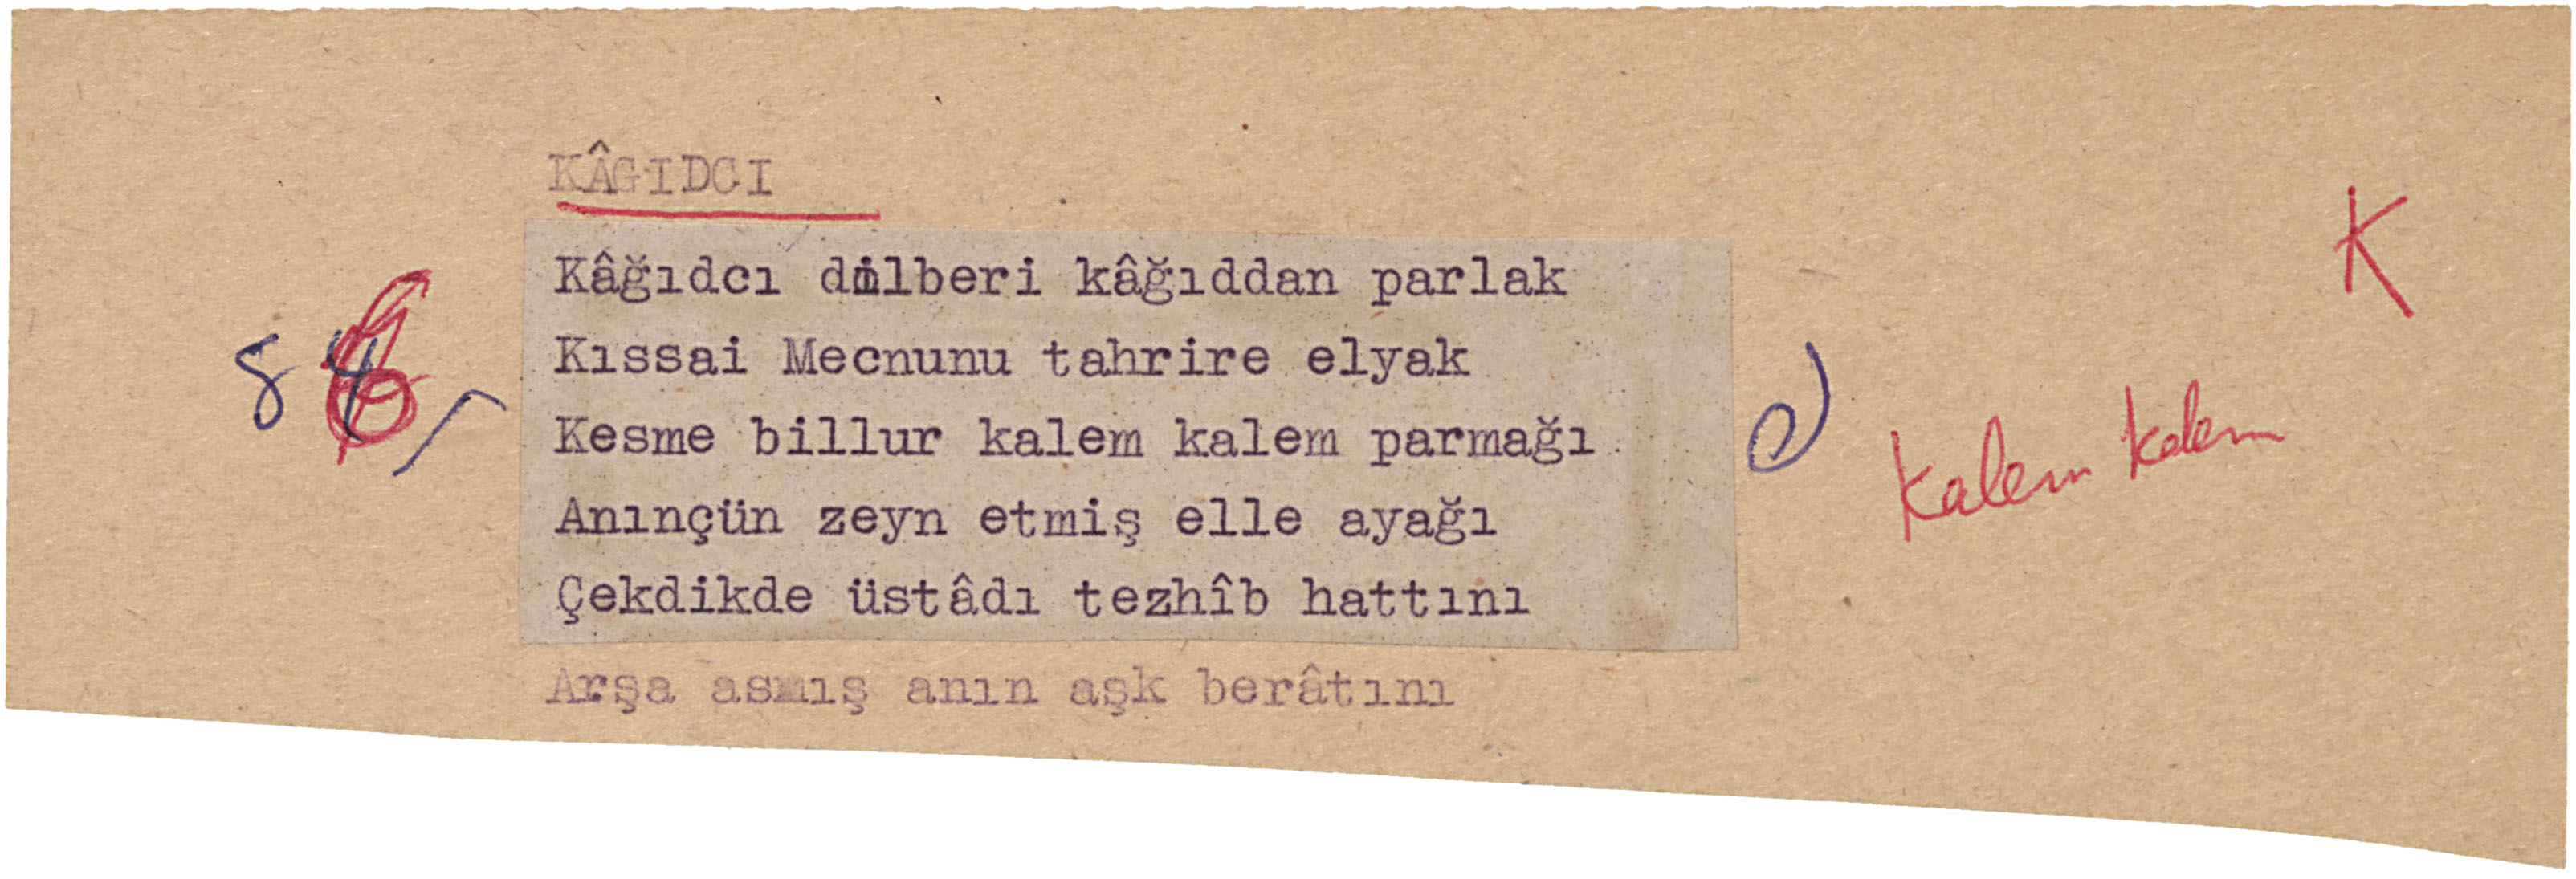 KÂGIDCI
K
Kâğıdcı dilberi kâğıddan parlak
Kıssai Mecnunu tahrire elyak
84
Kesme billur kalem kalem parmağı
kalem kalem
Anınçün zeyn etmiş elle ayağı
Çekdikde üstâdı tezhîb hattını
Arşa asmış anın aşk berâtını